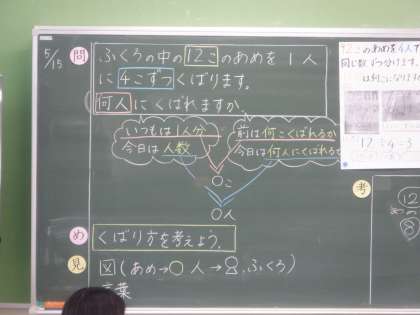 5/15
問 ふくろの中の12このあめを1人
に4こずつくばります。
何人にくばれますか。
いつもは1人分
今日は人数
前は何こくばれるか
今日は何人にくばれるか
○こ
○人
め くばり方を考えよう。
見 図(あめ→○ 人→ ふくろ)
言葉
12このあめを4人で
同じ数
12÷4=3
考
12
8